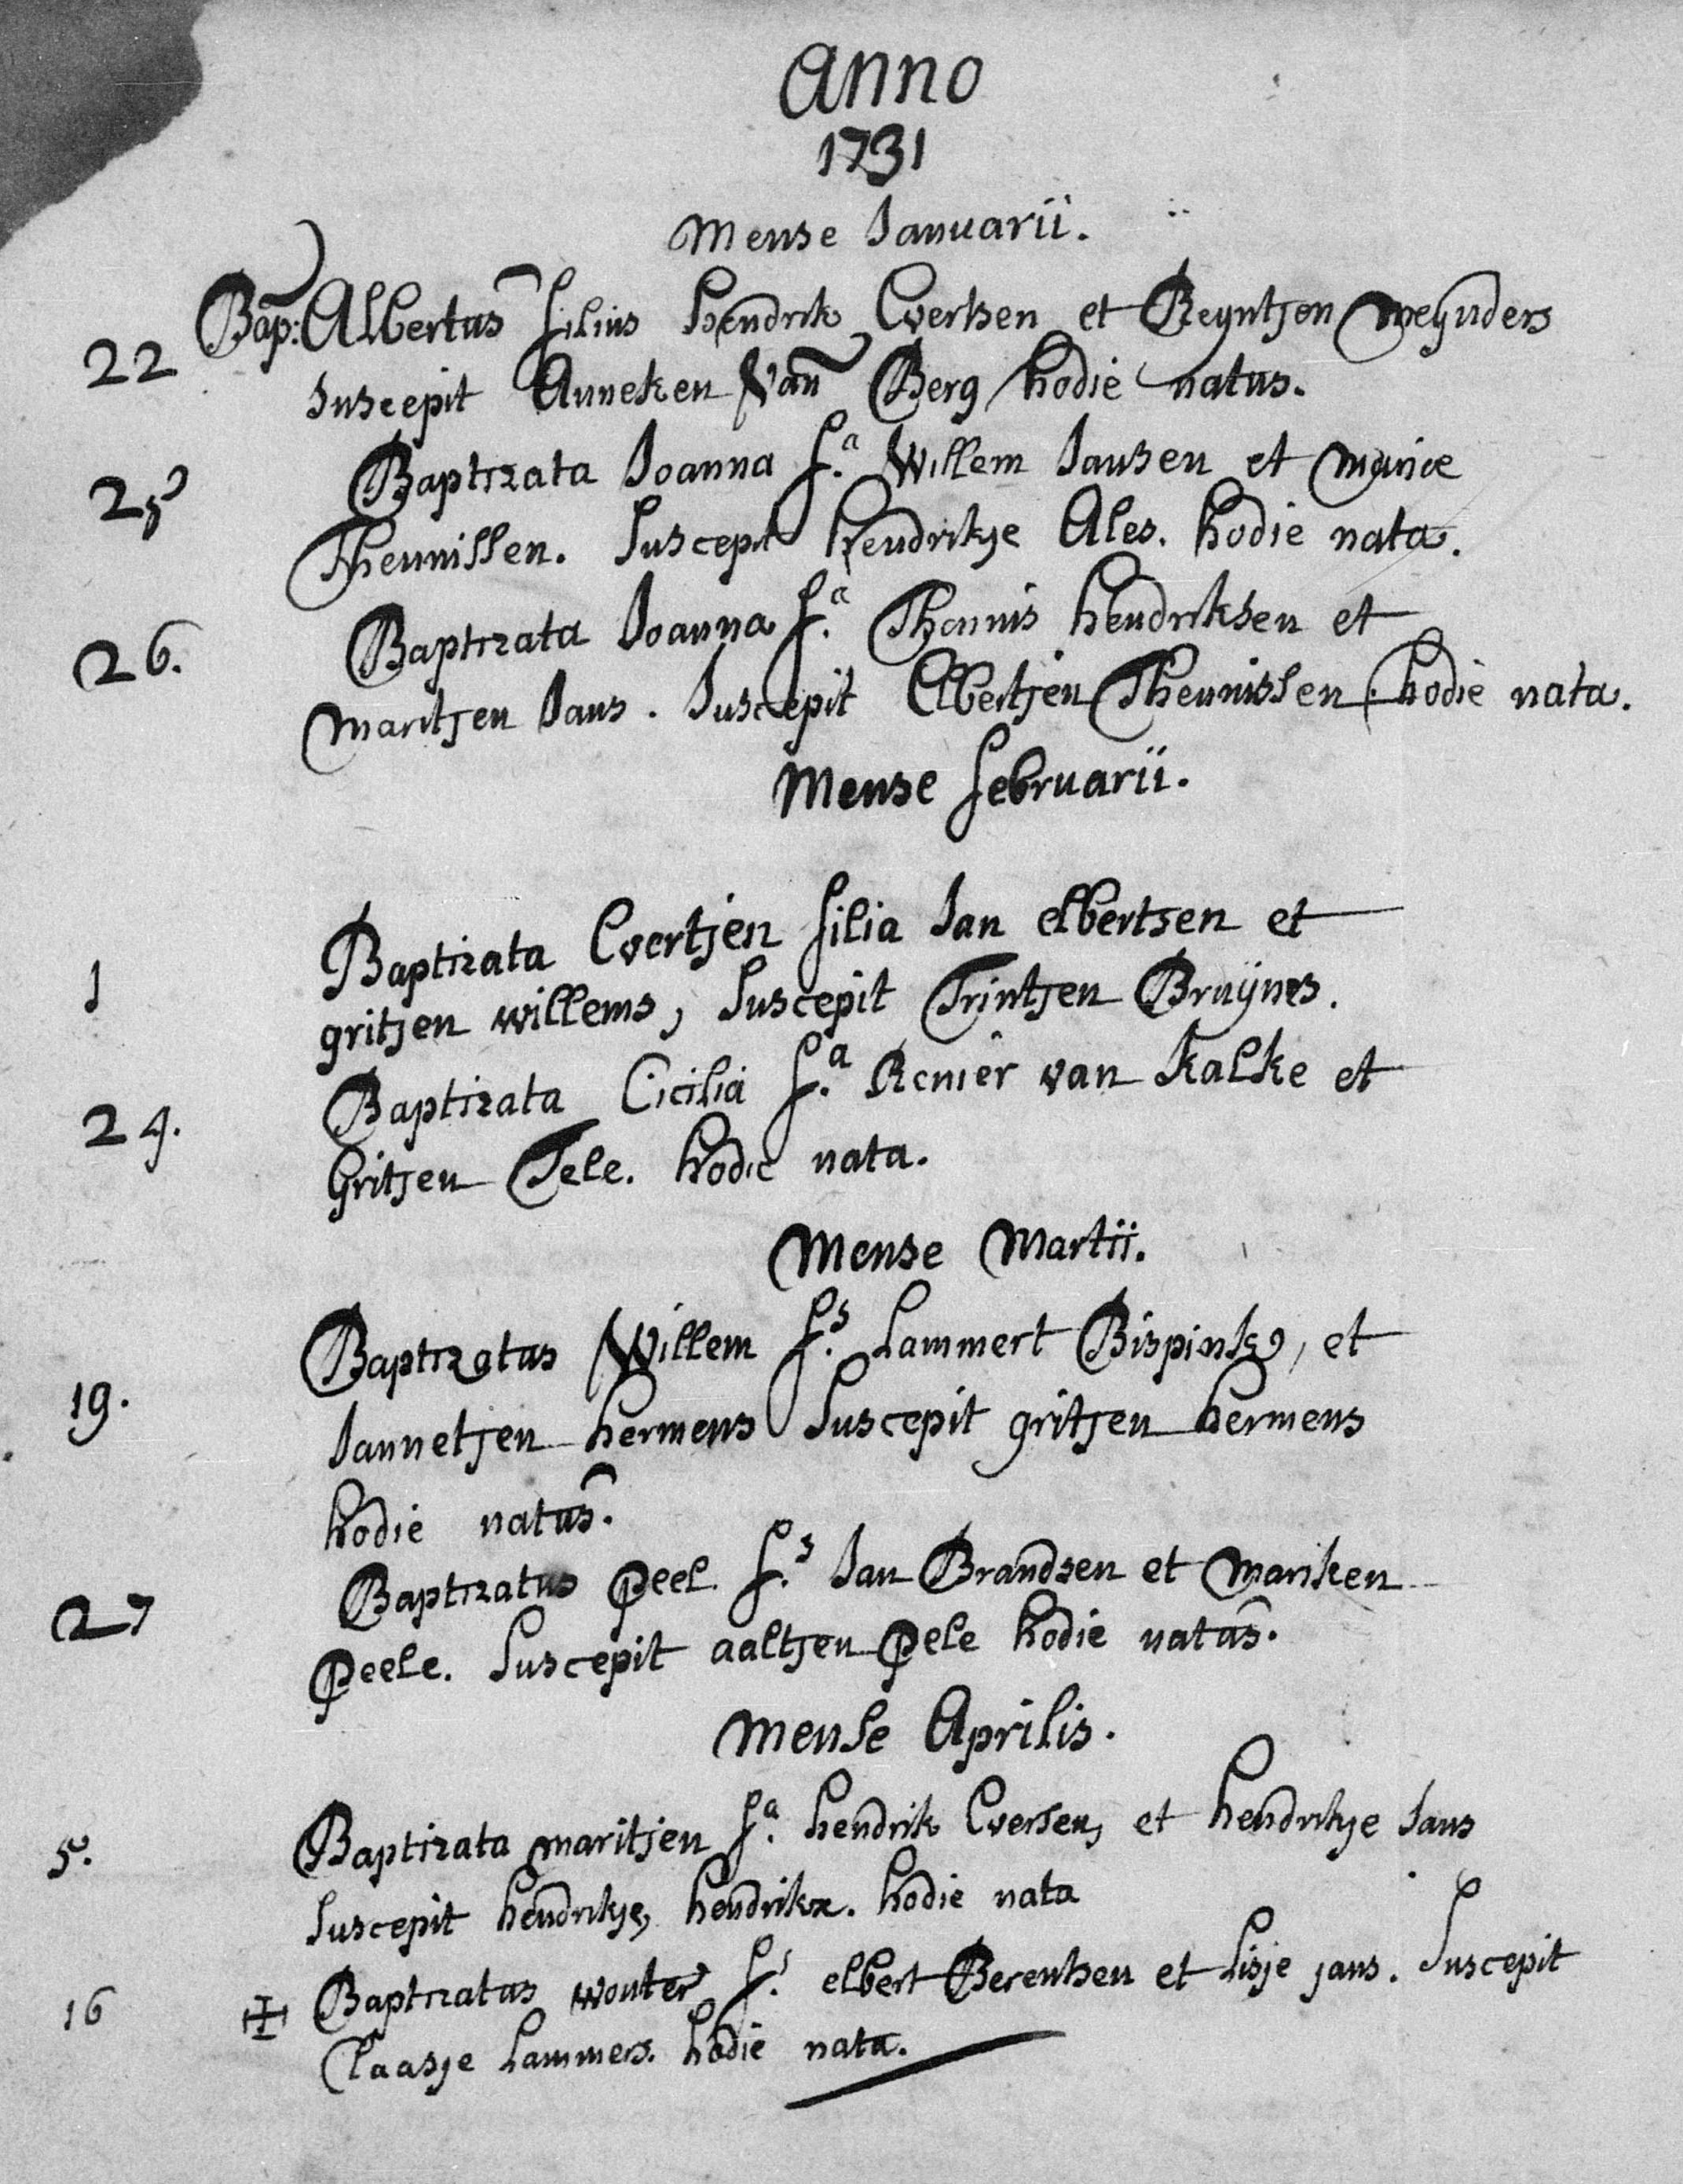 Anno
1731
Mense Januarii.
22 Bap: Albertus filius Hendrik Evertsen et Reyntjen Meynders
suscepit Anneken Van Berg hodie natus.
25 Baptizata Joanna f.a Willem Jansen et Marice
Theunissen. Suscepit hendrikje Ales. hodie nata.
26. Baptizata Joanna f.a Theunis hendriksen et
maritjen Jans. Suscepit Elbertjen Theunissen. hodie nata.
Mense februarii.
1 Baptizata Evertjen filia Jan elbertsen et
gritjen willems, Suscepit Trintjen Bruÿnes.
24. Baptizata Cicilia f.a Renier van Kalke et
Gritjen Tele. hodie nata.
Mense Martii.
19. Baptizatus Willem f.s Lammert Bispink, et
Jannetjen hermens Suscepit gritjen hermens
hodie natus.
27 Baptizatus Peel f.s Jan Brandsen et Mariken
Peele. Suscepit aaltjen Pele hodie natus.
Mense Aprilis.
5. Baptizata maritjen f.a hendrik Eversen, et hendrikje Jans
Suscepit hendrikje, hendrikx. hodie nata
16 Baptizatus wouter f.s elbert Berentsen et Lisje jans. Suscepit
Claasje Lammers. hodie nata.